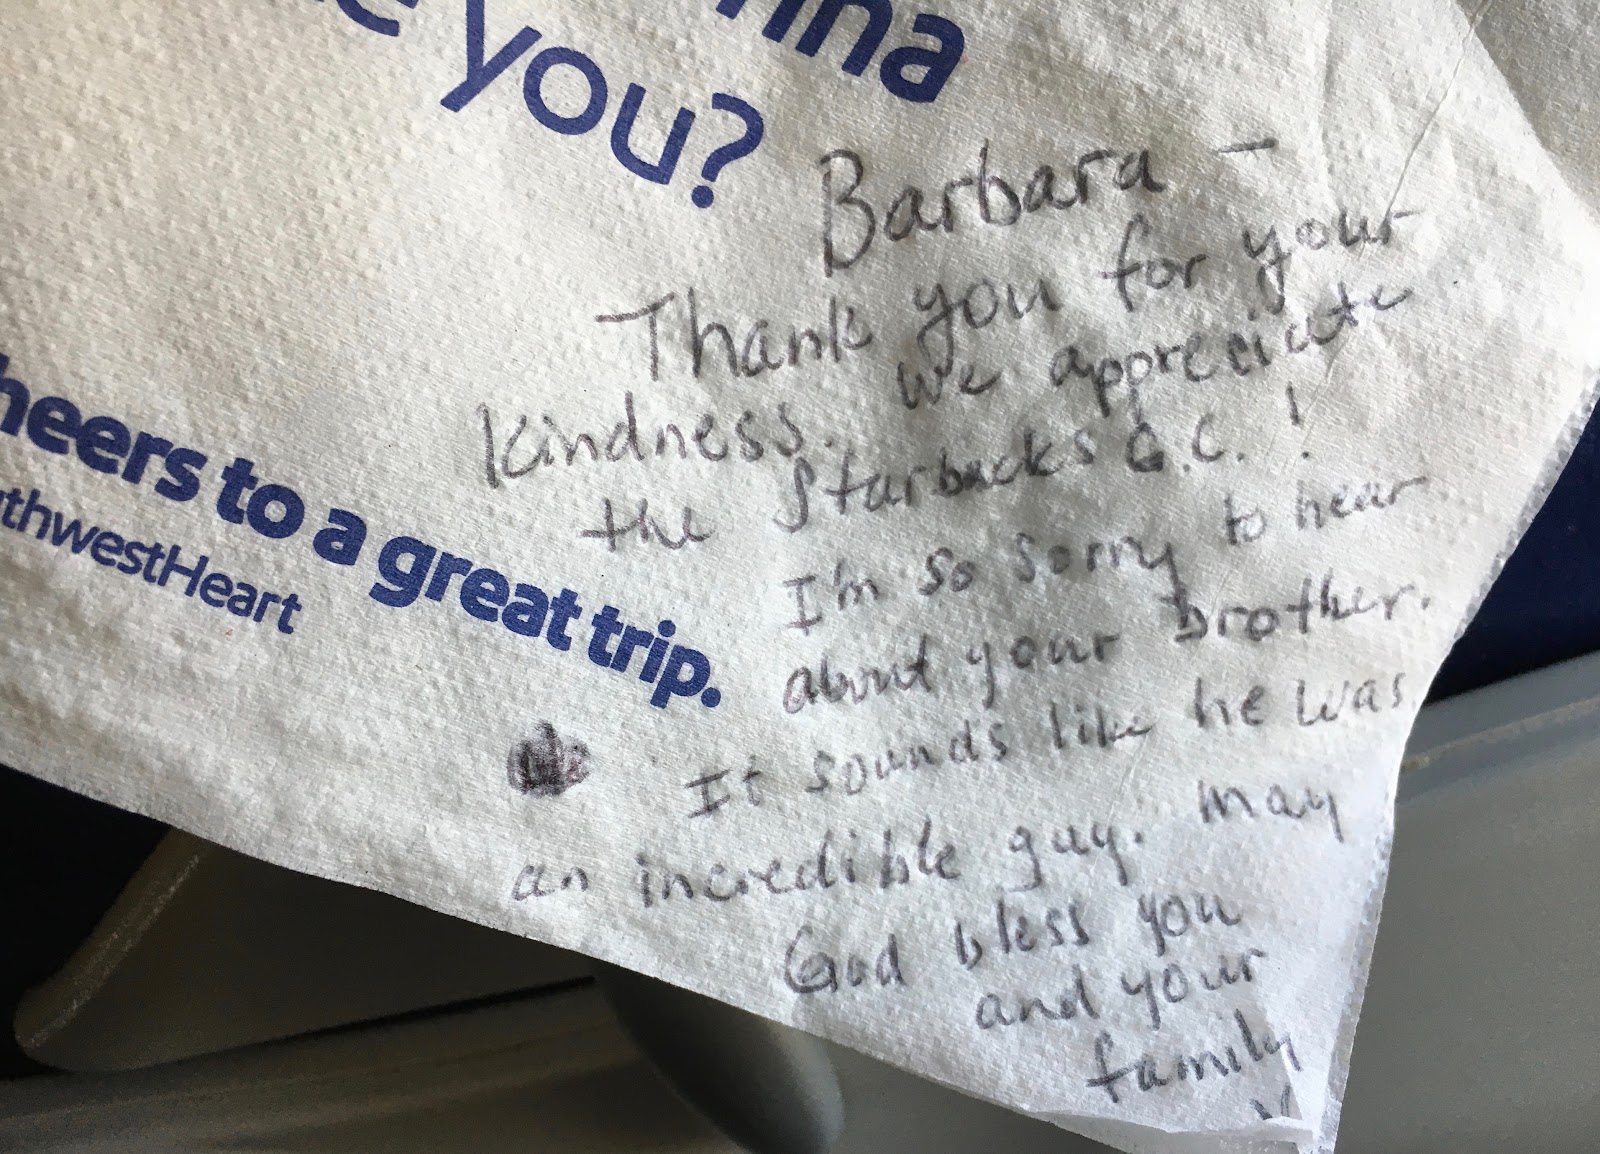 you?
Barbara –
Thank you for your
kindness. we appreciate
the Starbucks G.C. !
I'm so sorry to hear
about your brother.
It sounds like he was
an incredible guy. May
God bless you
and your
family
heers to a great trip.
thwestHeart